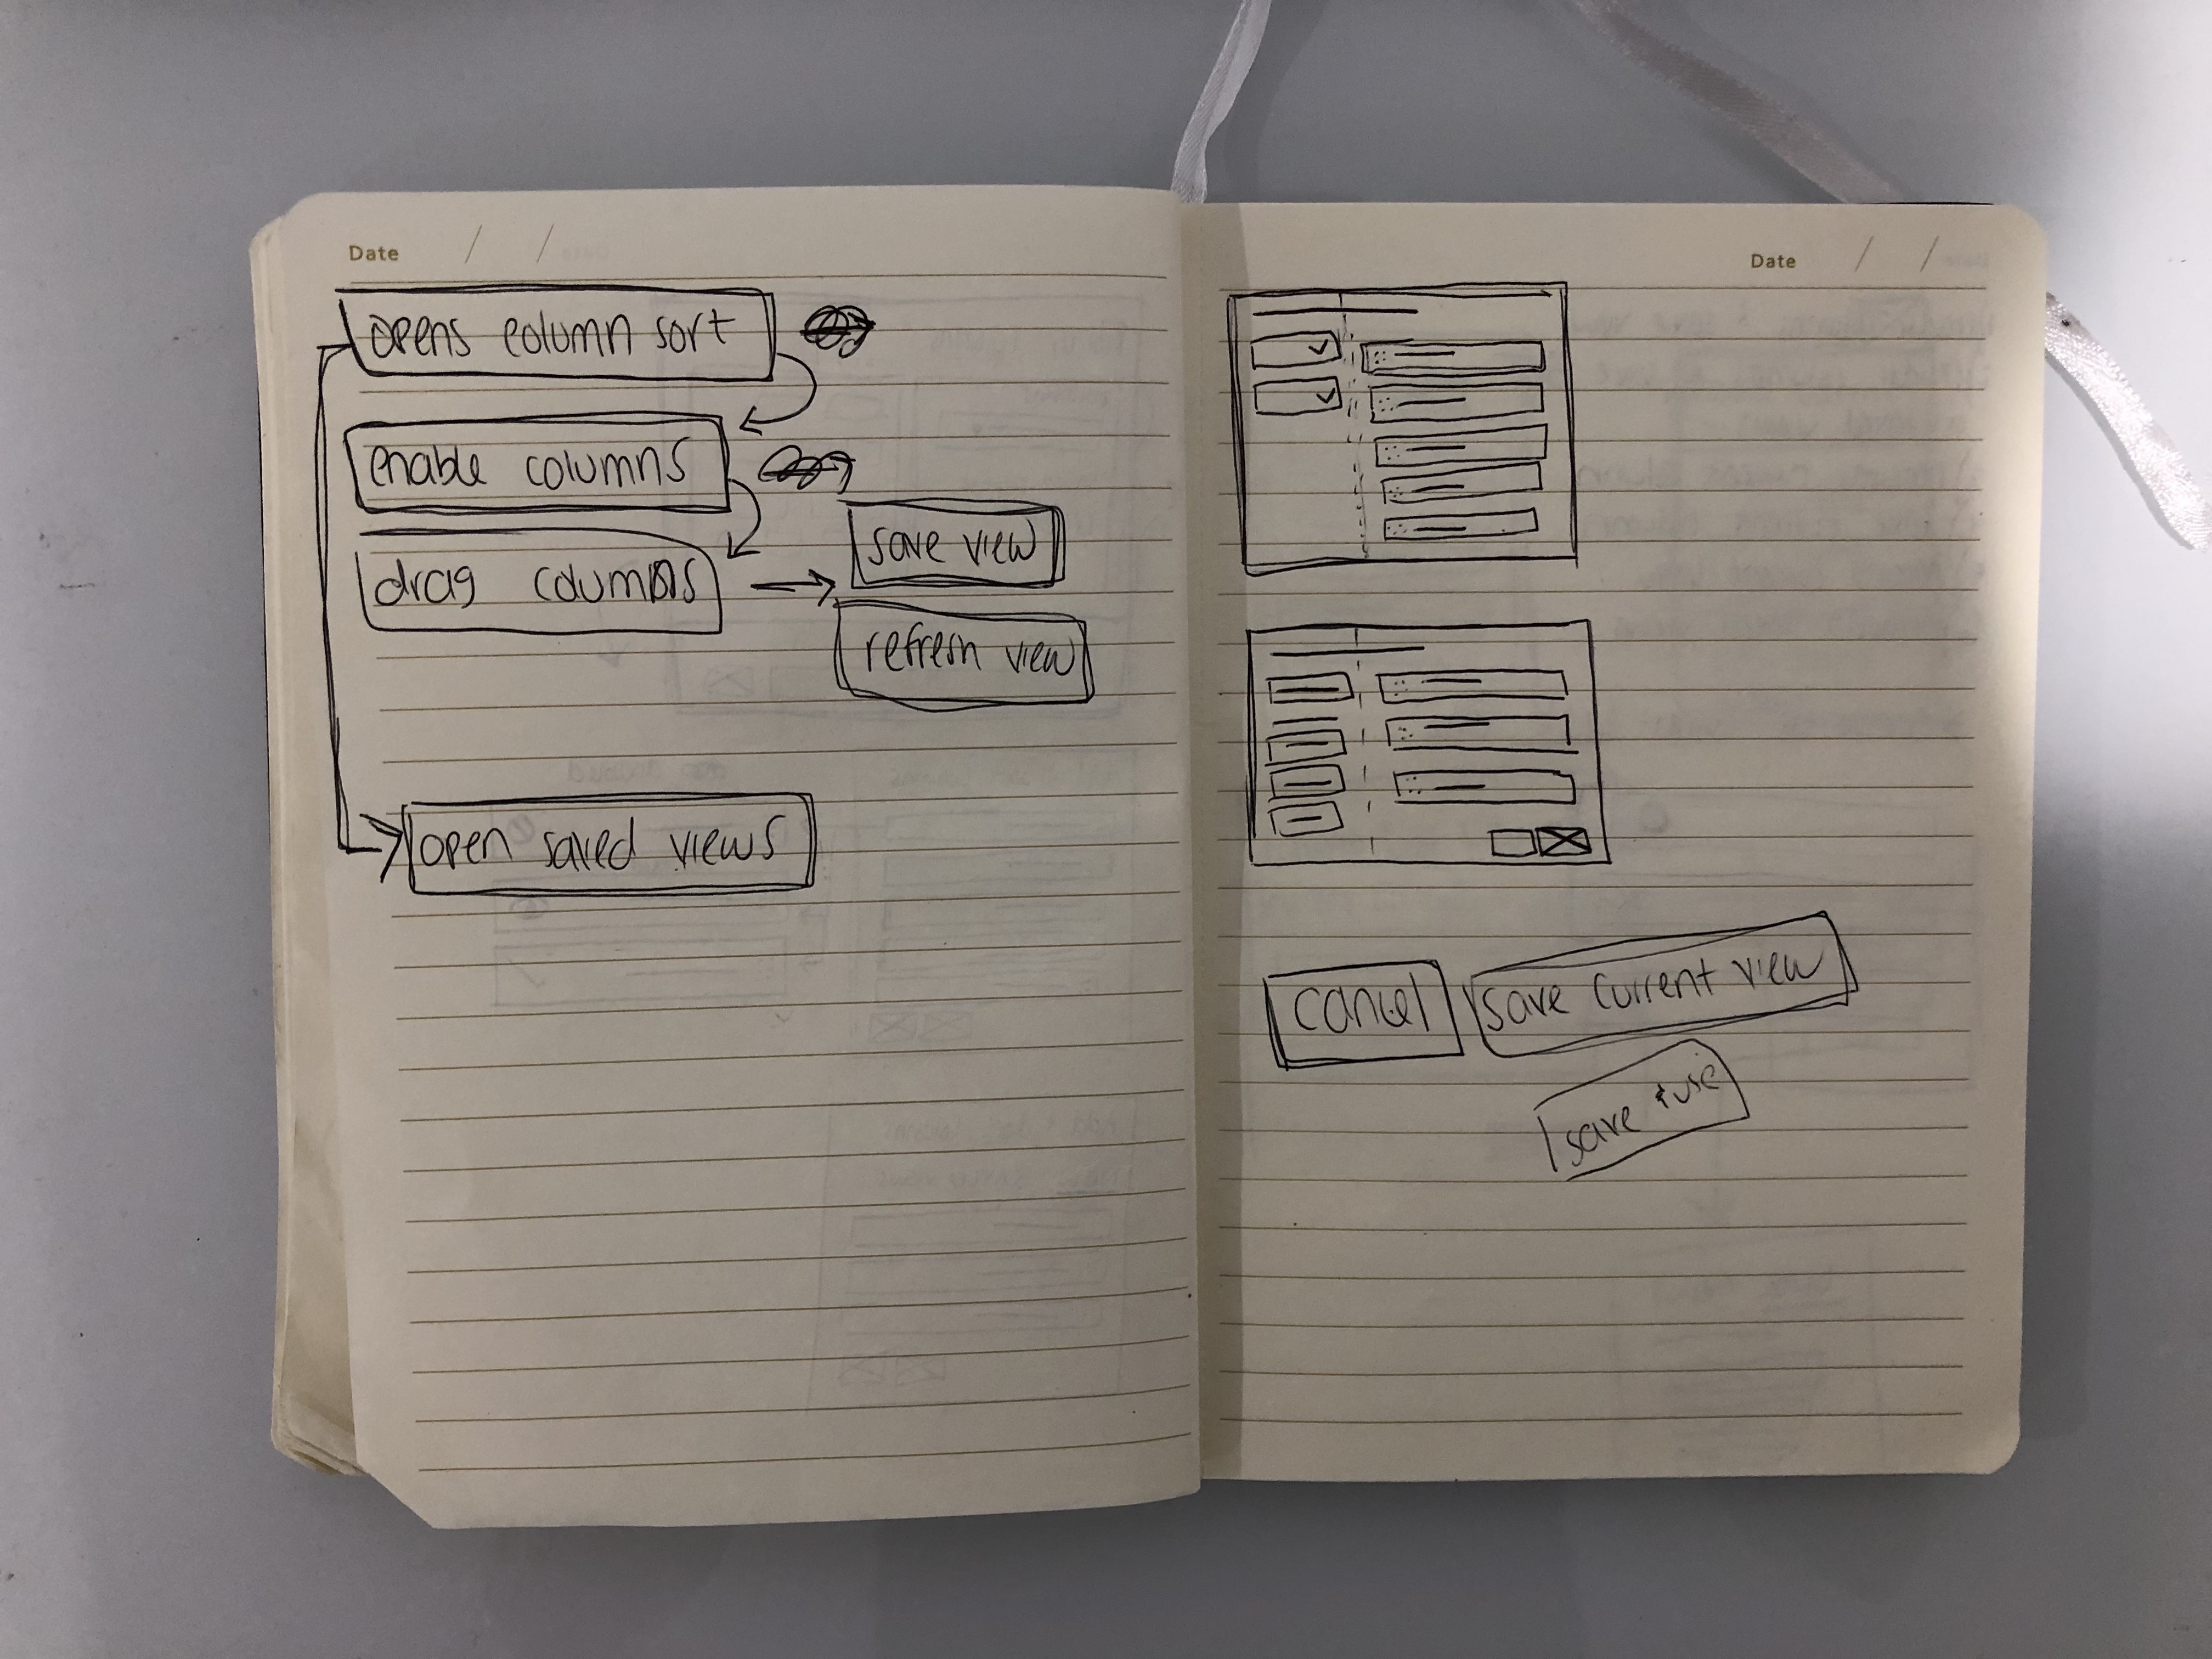 Date / /
opens column sort
enable columns
drag columns
save view
refresh view
open saved views
Date / /
cancel
save current view
save & use